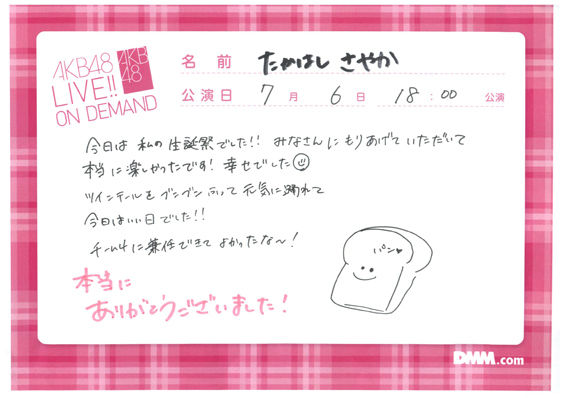 AKB48
LIVE!!
ON DEMAND
AKB
48
名前 たかはし さやか
公演日 7月 6日 18:00 公演
今日は 私の 生誕祭でした!! みなさんに もりあげて いただいて
本当に楽しかったです! 幸せでした
ツインテールを ブンブン ふって 元気に踊れて
今日はいい日でした!!
チーム4に兼任できて よかったな〜!
パン♥
本当に
ありがとうございました!
DMM.com